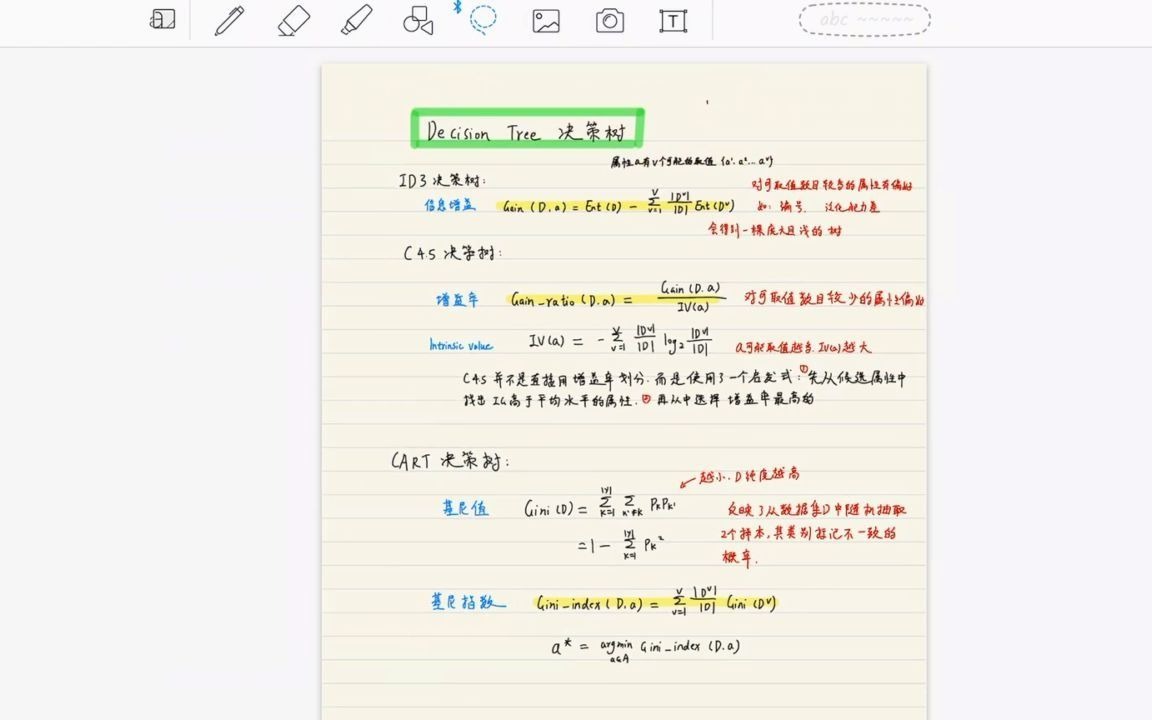 abc ~~~~~
T
Decision Tree 决策树
属性a有V个可能的取值 {a¹, a² ... aⱽ}
ID3 决策树:
信息增益 Gain (D,a) = Ent(D) - ∑ᵥ₌₁ⱽ |Dᵛ|/|D| Ent(Dᵛ)
对可取值数目较多的属性有偏好
如: 编号. 泛化能力差
会得到一棵庞大且浅的树
C4.5 决策树:
增益率 Gain_ratio (D,a) = Gain(D,a) / IV(a) 对可取值数目较少的属性偏好
Intrinsic value IV(a) = - ∑ᵥ₌₁ⱽ |Dᵛ|/|D| log₂ |Dᵛ|/|D| a可能取值越多, IV(a)越大
C4.5 并不是直接用增益率划分. 而是使用了一个启发式: ①先从候选属性中
找出 IG高于平均水平的属性. ②再从中选择 增益率最高的
CART 决策树:
越小, D纯度越高
基尼值 Gini (D) = ∑ₖ₌₁|y| ∑ₖ'≠ₖ PₖPₖ'
= 1 - ∑ₖ₌₁|y| Pₖ²
反映了从数据集D中随机抽取
2个样本, 其类别标记不一致的
概率.
基尼指数 Gini_index (D,a) = ∑ᵥ₌₁ⱽ |Dᵛ|/|D| Gini (Dᵛ)
a* = argmin a∈A Gini_index (D,a)